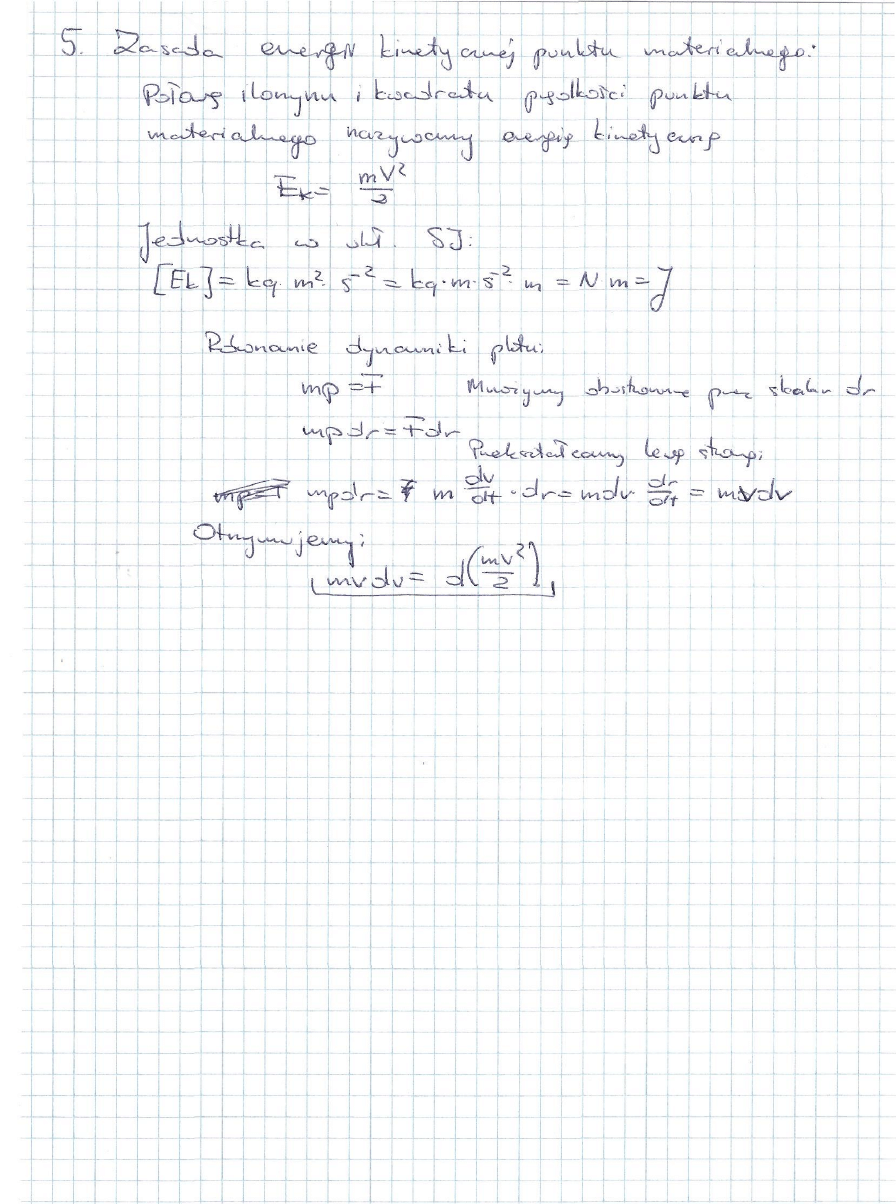 5. Zasada energii kinetycznej punktu materialnego:
Połowę iloczynu i kwadratu prędkości punktu
materialnego nazywamy energią kinetyczną
Ek = mV²/2
Jednostka w ukł. SJ:
[Ek] = kg · m² · s⁻² = kg · m · s⁻² · m = N m = J
Równanie dynamiki pktu:
mp = F Mnożymy obustronnie przez skalar dr
mp dr = F dr
Przekształcamy lewą stronę:
mpdr = m dv/dt · dr = mdv · dr/dt = mvdv
Otrzymujemy:
mvdv = d(mv²/2)